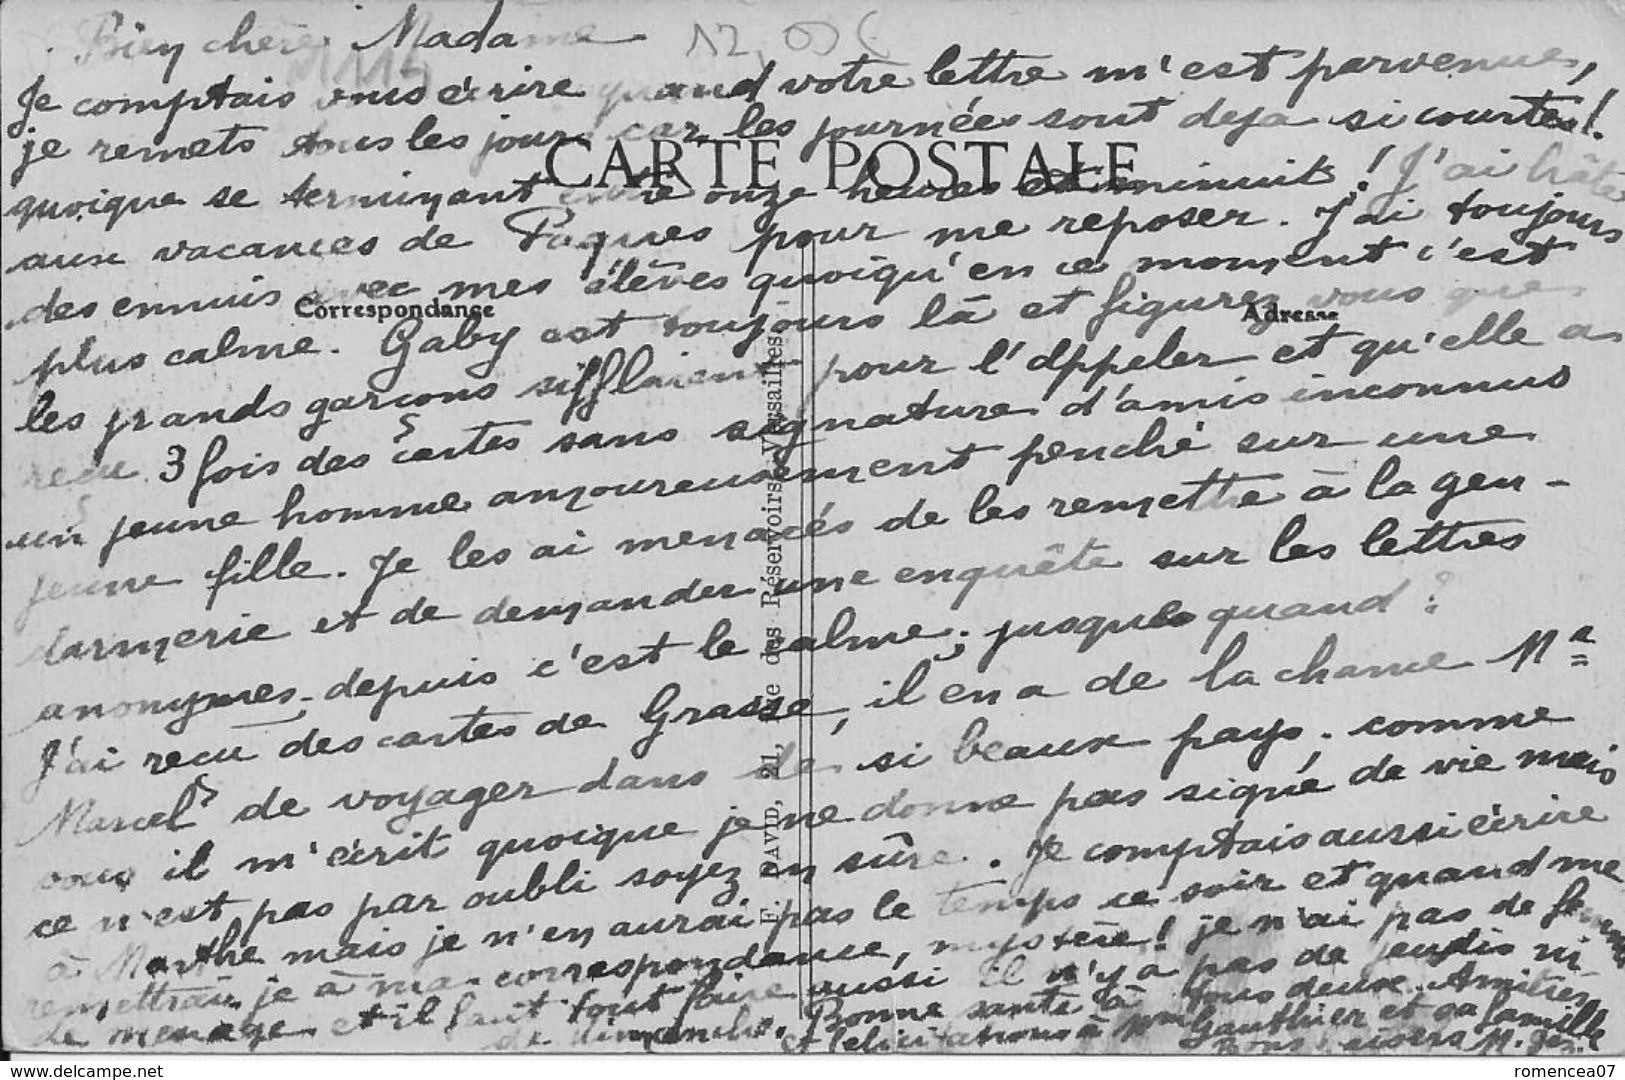 Bien chère Madame
12,09€
Je comptais vous écrire quand votre lettre m'est parvenue,
je remets tous les jours car, les journées sont deja si courtes!
CARTE POSTALE
quoique se terminant entre onze heures et minuit! J'ai hâte
aux vacances de Pâques pour me reposer. J'ai toujours
des ennuis avec mes élèves quoiqu'en ce moment c'est
Correspondance
Adresse
plus calme. Gaby est toujours là et figurez vous que
les grands garçons sifflaient pour l'appeler et qu'elle a
recu 3 fois des cartes sans signature d'amis inconnus
un jeune homme amoureusement penché sur une
jeune fille. Je les ai menacés de les remettre à la gen-
darmerie et de demander une enquête sur les lettres
anonymes, depuis c'est le calme; jusques quand?
J'ai reçu des cartes de Grasse, il en a de la chance Mr
Marcel de voyager dans de si beaux pays. comme
vous il m'écrit quoique je ne donne pas signe de vie mais
ce n'est pas par oubli soyez en sûre. Je comptais aussi écrire
à Marthe mais je n'en aurai pas le temps ce soir et quand me
remettrai je à ma correspondance, mystère! je n'ai pas de femme
de menage et il faut tout faire aussi il n'y a pas de jeudis ni
de dimanche. Bonne santé à tous deux. Amitiés
et felicitations à Mme Gauthier et sa famille
Bons
E. DAVID, 21, Rue des Réservoirs - Versailles
delcampe.net
romencea07